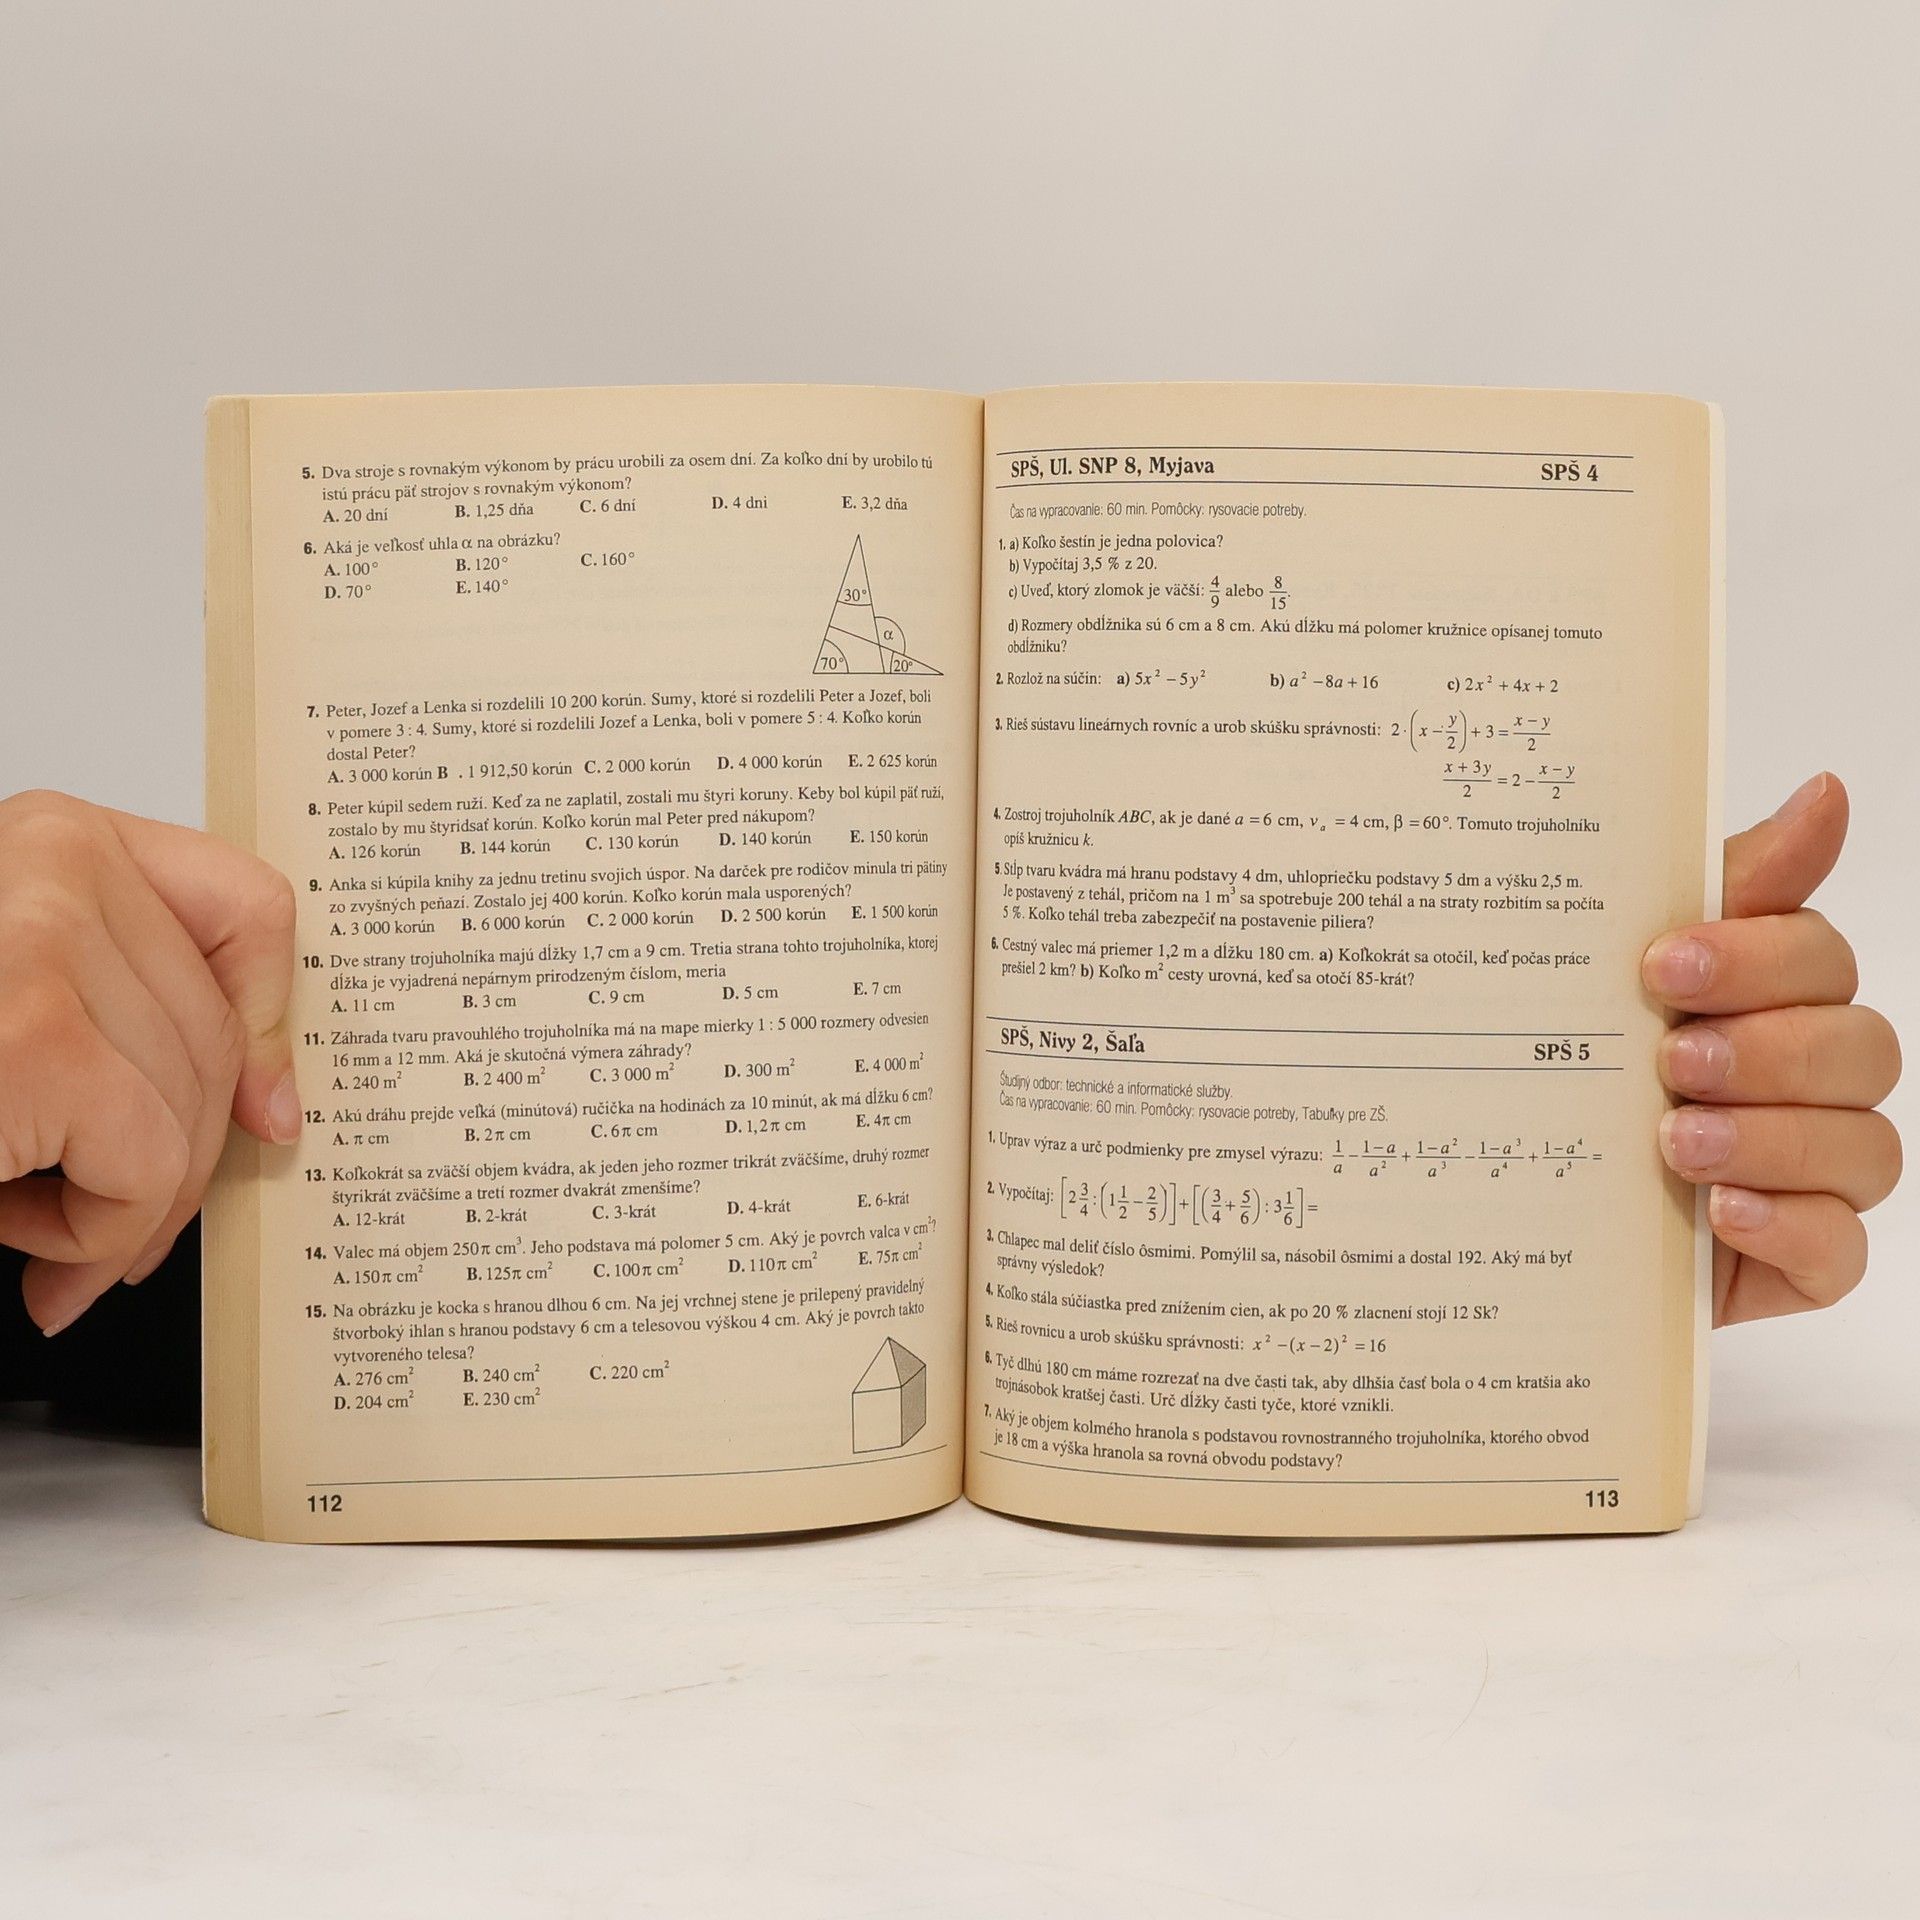 5. Dva stroje s rovnakým výkonom by prácu urobili za osem dní. Za koľko dní by urobilo tú
istú prácu päť strojov s rovnakým výkonom?
A. 20 dní B. 1,25 dňa C. 6 dní D. 4 dni E. 3,2 dňa
6. Aká je veľkosť uhla α na obrázku?
A. 100° B. 120° C. 160°
D. 70° E. 140°
30°
α
70° 20°
7. Peter, Jozef a Lenka si rozdelili 10 200 korún. Sumy, ktoré si rozdelili Peter a Jozef, boli
v pomere 3 : 4. Sumy, ktoré si rozdelili Jozef a Lenka, boli v pomere 5 : 4. Koľko korún
dostal Peter?
A. 3 000 korún B . 1 912,50 korún C. 2 000 korún D. 4 000 korún E. 2 625 korún
8. Peter kúpil sedem ruží. Keď za ne zaplatil, zostali mu štyri koruny. Keby bol kúpil päť ruží,
zostalo by mu štyridsať korún. Koľko korún mal Peter pred nákupom?
A. 126 korún B. 144 korún C. 130 korún D. 140 korún E. 150 korún
9. Anka si kúpila knihy za jednu tretinu svojich úspor. Na darček pre rodičov minula tri pätiny
zo zvyšných peňazí. Zostalo jej 400 korún. Koľko korún mala usporených?
A. 3 000 korún B. 6 000 korún C. 2 000 korún D. 2 500 korún E. 1 500 korún
10. Dve strany trojuholníka majú dĺžky 1,7 cm a 9 cm. Tretia strana tohto trojuholníka, ktorej
dĺžka je vyjadrená nepárnym prirodzeným číslom, meria
A. 11 cm B. 3 cm C. 9 cm D. 5 cm E. 7 cm
11. Záhrada tvaru pravouhlého trojuholníka má na mape mierky 1 : 5 000 rozmery odvesien
16 mm a 12 mm. Aká je skutočná výmera záhrady?
A. 240 m² B. 2 400 m² C. 3 000 m² D. 300 m² E. 4 000 m²
12. Akú dráhu prejde veľká (minútová) ručička na hodinách za 10 minút, ak má dĺžku 6 cm?
A. π cm B. 2π cm C. 6π cm D. 1,2π cm E. 4π cm
13. Koľkokrát sa zväčší objem kvádra, ak jeden jeho rozmer trikrát zväčšíme, druhý rozmer
štyrikrát zväčšíme a tretí rozmer dvakrát zmenšíme?
A. 12-krát B. 2-krát C. 3-krát D. 4-krát E. 6-krát
14. Valec má objem 250π cm³. Jeho podstava má polomer 5 cm. Aký je povrch valca v cm²?
A. 150π cm² B. 125π cm² C. 100π cm² D. 110π cm² E. 75π cm²
15. Na obrázku je kocka s hranou dlhou 6 cm. Na jej vrchnej stene je prilepený pravidelný
štvorboký ihlan s hranou podstavy 6 cm a telesovou výškou 4 cm. Aký je povrch takto
vytvoreného telesa?
A. 276 cm² B. 240 cm² C. 220 cm²
D. 204 cm² E. 230 cm²
112
SPŠ, Ul. SNP 8, Myjava SPŠ 4
Čas na vypracovanie: 60 min. Pomôcky: rysovacie potreby.
1. a) Koľko šestín je jedna polovica?
b) Vypočítaj 3,5 % z 20.
c) Uveď, ktorý zlomok je väčší: 4/9 alebo 8/15.
d) Rozmery obdĺžnika sú 6 cm a 8 cm. Akú dĺžku má polomer kružnice opísanej tomuto
obdĺžniku?
2. Rozlož na súčin: a) 5x² − 5y² b) a² − 8a + 16 c) 2x² + 4x + 2
3. Rieš sústavu lineárnych rovníc a urob skúšku správnosti: 2 · (x − y/2) + 3 = (x − y)/2
(x + 3y)/2 = 2 − (x − y)/2
4. Zostroj trojuholník ABC, ak je dané a = 6 cm, vₐ = 4 cm, β = 60°. Tomuto trojuholníku
opíš kružnicu k.
5. Stĺp tvaru kvádra má hranu podstavy 4 dm, uhlopriečku podstavy 5 dm a výšku 2,5 m.
Je postavený z tehál, pričom na 1 m³ sa spotrebuje 200 tehál a na straty rozbitím sa počíta
5 %. Koľko tehál treba zabezpečiť na postavenie piliera?
6. Cestný valec má priemer 1,2 m a dĺžku 180 cm. a) Koľkokrát sa otočil, keď počas práce
prešiel 2 km? b) Koľko m² cesty urovná, keď sa otočí 85-krát?
SPŠ, Nivy 2, Šaľa SPŠ 5
Študijný odbor: technické a informatické služby.
Čas na vypracovanie: 60 min. Pomôcky: rysovacie potreby, Tabuľky pre ZŠ.
1. Uprav výraz a urč podmienky pre zmysel výrazu: 1/a − (1−a)/a² + (1−a²)/a³ − (1−a³)/a⁴ + (1−a⁴)/a⁵ =
2. Vypočítaj: [2 3/4 : (1 1/2 − 2/5)] + [(3/4 + 5/6) : 3 1/6] =
3. Chlapec mal deliť číslo ôsmimi. Pomýlil sa, násobil ôsmimi a dostal 192. Aký má byť
správny výsledok?
4. Koľko stála súčiastka pred znížením cien, ak po 20 % zlacnení stojí 12 Sk?
5. Rieš rovnicu a urob skúšku správnosti: x² − (x − 2)² = 16
6. Tyč dlhú 180 cm máme rozrezať na dve časti tak, aby dlhšia časť bola o 4 cm kratšia ako
trojnásobok kratšej časti. Urč dĺžky časti tyče, ktoré vznikli.
7. Aký je objem kolmého hranola s podstavou rovnostranného trojuholníka, ktorého obvod
je 18 cm a výška hranola sa rovná obvodu podstavy?
113